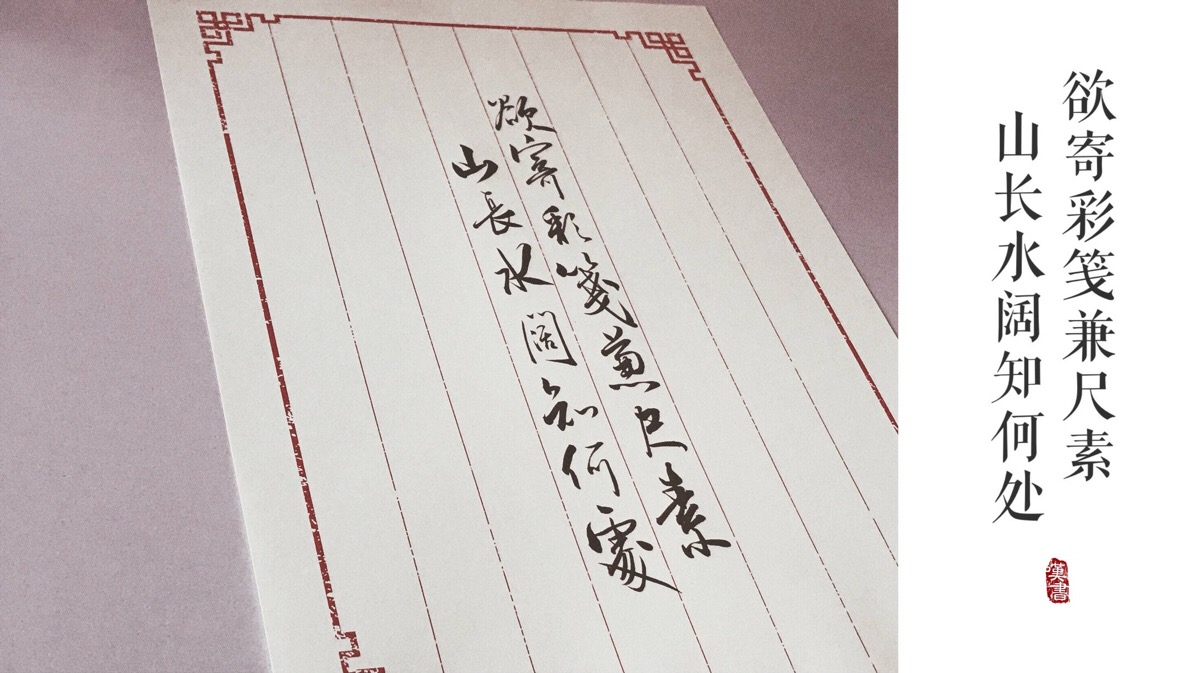 欲寄彩箋兼尺素
山長水闊知何處
欲寄彩笺兼尺素
山长水阔知何处
漢書